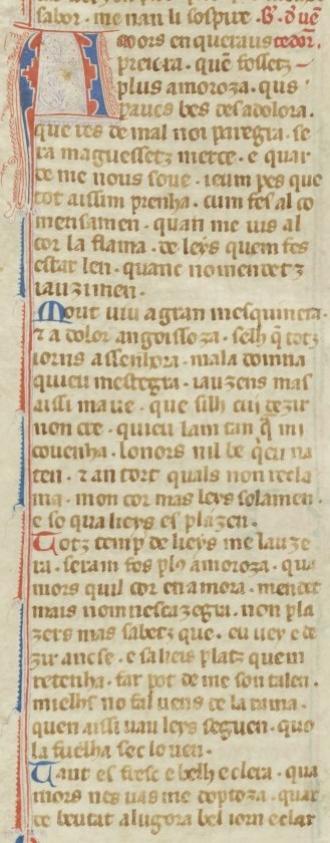 sabor. me nan li sospire. B. d ue
Amors enqueraus tedor.
preiera. quē fossetz
plus amoroza. qus
paucs bes desadolora.
que res de mal noi paregra. se
ra maguessetz merce. e quar
de me nous soue. ieum pes que
tot aissim prenha. cum fes al co
mensamen. quan me uis al
cor la flama. de leys quem fes
estar len. quanc nomendetz
iauzimen.
Mout uiu a gran mesquineira.
⁊ a dolor angoissoza. selh q̄ totz
iorns assenhora. mala domna
quieu mestegra. iauzens mas
aissi maue. que silh cuj dezir
non cre. quieu lam tan q̄ mi
couenha. lonors nil be q̄eu na
ten. ⁊ an tort quals non recla
ma. mon cor mas leys solamen.
e so qua lieys es plazen.
Totz temp de lieys me lauze
ra. seram fos pl9 amoroza. qua
mors quil cor enamora. mendet
mais nomnescazegra. non pla
zers mas sabetz que. eu uey e de
zir ancse. e sa lieis platz quem
retenha. far pot de me son talen.
mielhs no fai uens de la rama.
quen aissi uau leys seguen. quo
la fuelha sec lo uen.
Tant es fresc e belh e clera. qua
mors nes uas me doptoza. quar
sa beutat alugora bel iorn e clar